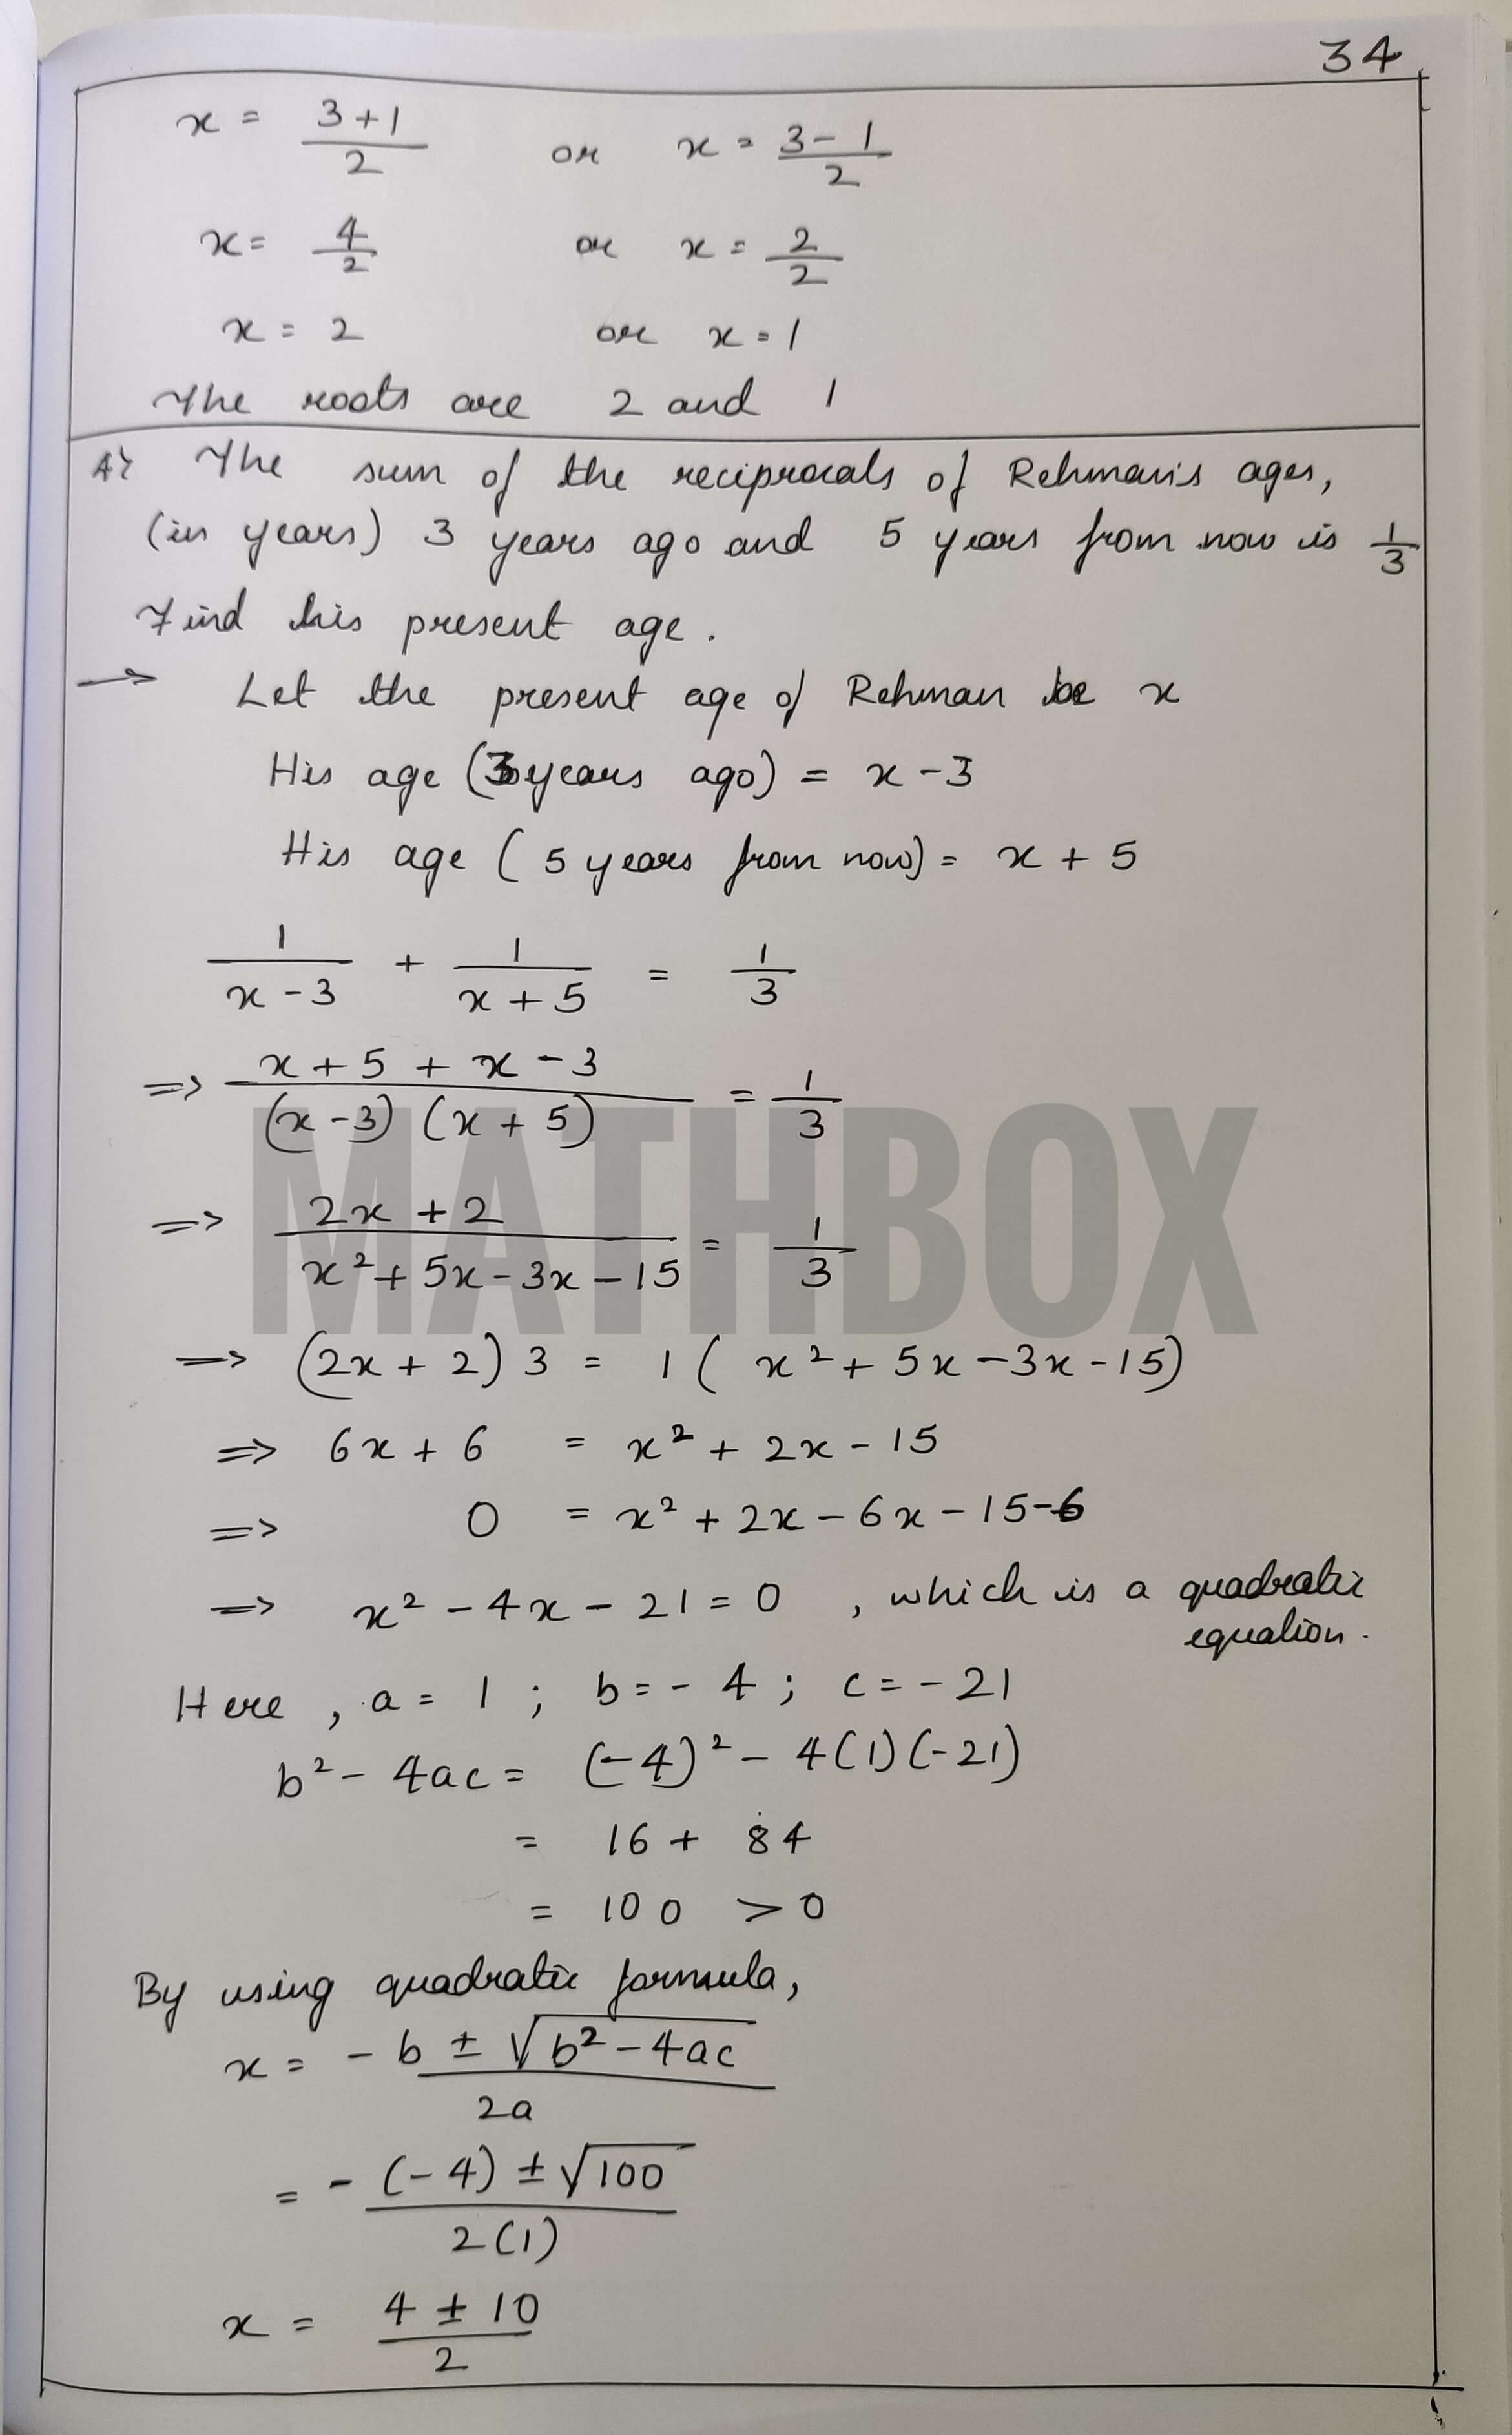 34
x = 3+1/2 or x = 3-1/2
x = 4/2 or x = 2/2
x = 2 or x = 1
The roots are 2 and 1
4) The sum of the reciprocals of Rehman's ages,
(in years) 3 years ago and 5 years from now is 1/3
Find his present age.
→ Let the present age of Rehman be x
His age (3 years ago) = x - 3
His age (5 years from now) = x + 5
1/x-3 + 1/x+5 = 1/3
=> x+5+x-3/(x-3)(x+5) = 1/3
=> 2x+2/x²+5x-3x-15 = 1/3
=> (2x+2)3 = 1(x²+5x-3x-15)
=> 6x+6 = x²+2x-15
=> 0 = x²+2x-6x-15-6
=> x²-4x-21=0, which is a quadratic
equation.
Here, a = 1; b = -4; c = -21
b²-4ac = (-4)²-4(1)(-21)
= 16+84
= 100 > 0
By using quadratic formula,
x = -b ± √b²-4ac/2a
= -(-4) ± √100/2(1)
x = 4 ± 10/2
MATHBOX